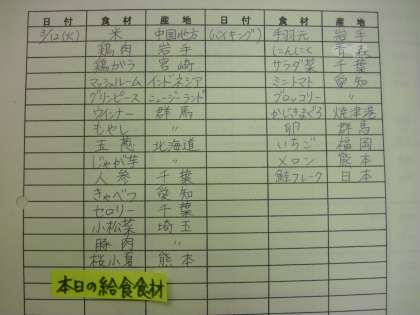 日付 食材 産地 日付 食材 産地
3/12(火) 米 中国地方 (バイキング) 手羽元 岩手
鶏肉 岩手 にんにく 青森
鶏ガラ 宮崎 サラダ菜 千葉
マッシュルーム インドネシア ミニトマト 愛知
グリンピース ニュージーランド ブロッコリー 〃
ウインナー 群馬 かじきまぐろ 焼津港
もやし 〃 卵 群馬
玉葱 北海道 いちご 福岡
じゃが芋 〃 メロン 熊本
人参 千葉 鮭フレーク 日本
きゃべつ 愛知
セロリー 千葉
小松菜 埼玉
豚肉 〃
桜小夏 熊本
本日の給食食材